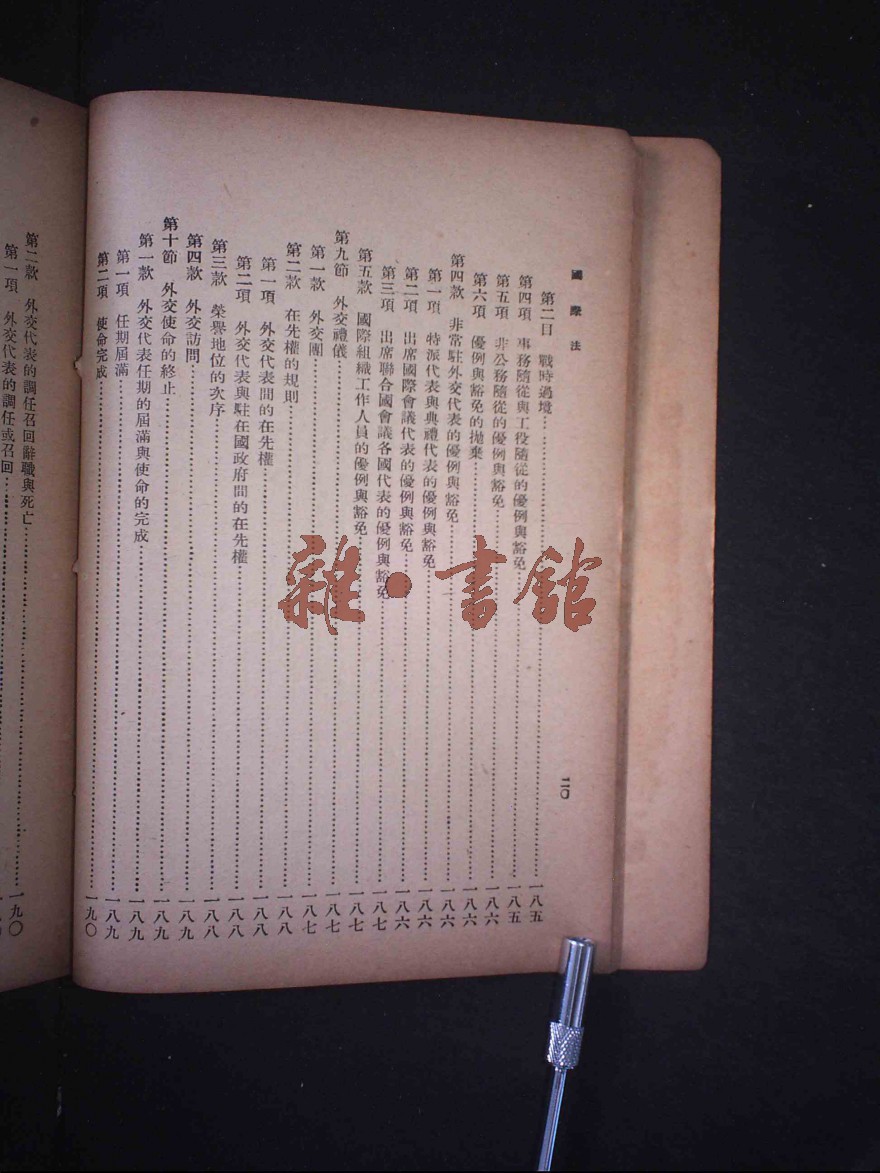 國際法
二〇
第二目 戰時過境……一八五
第四項 事務隨從與工役隨從的優例與豁免……一八五
第五項 非公務隨從的優例與豁免……一八六
第六項 優例與豁免的拋棄……一八六
第四款 非常駐外交代表的優例與豁免……一八六
第一項 特派代表與典禮代表的優例與豁免……一八六
第二項 出席國際會議代表的優例與豁免……一八六
第三項 出席聯合國會議各國代表的優例與豁免……一八七
第五款 國際組織工作人員的優例與豁免……一八七
第九節 外交禮儀……一八七
第一款 外交團……一八七
第二款 在先權的規則……一八八
第一項 外交代表間的在先權……一八八
第二項 外交代表與駐在國政府間的在先權……一八八
第三款 榮譽地位的次序……一八八
第四款 外交訪問……一八九
第十節 外交使命的終止……一八九
第一款 外交代表任期的屆滿與使命的完成……一八九
第一項 任期屆滿……一八九
第二項 使命完成……一九〇
第二款 外交代表的調任召回辭職與死亡……一九〇
第一項 外交代表的調任或召回……
雜·書館